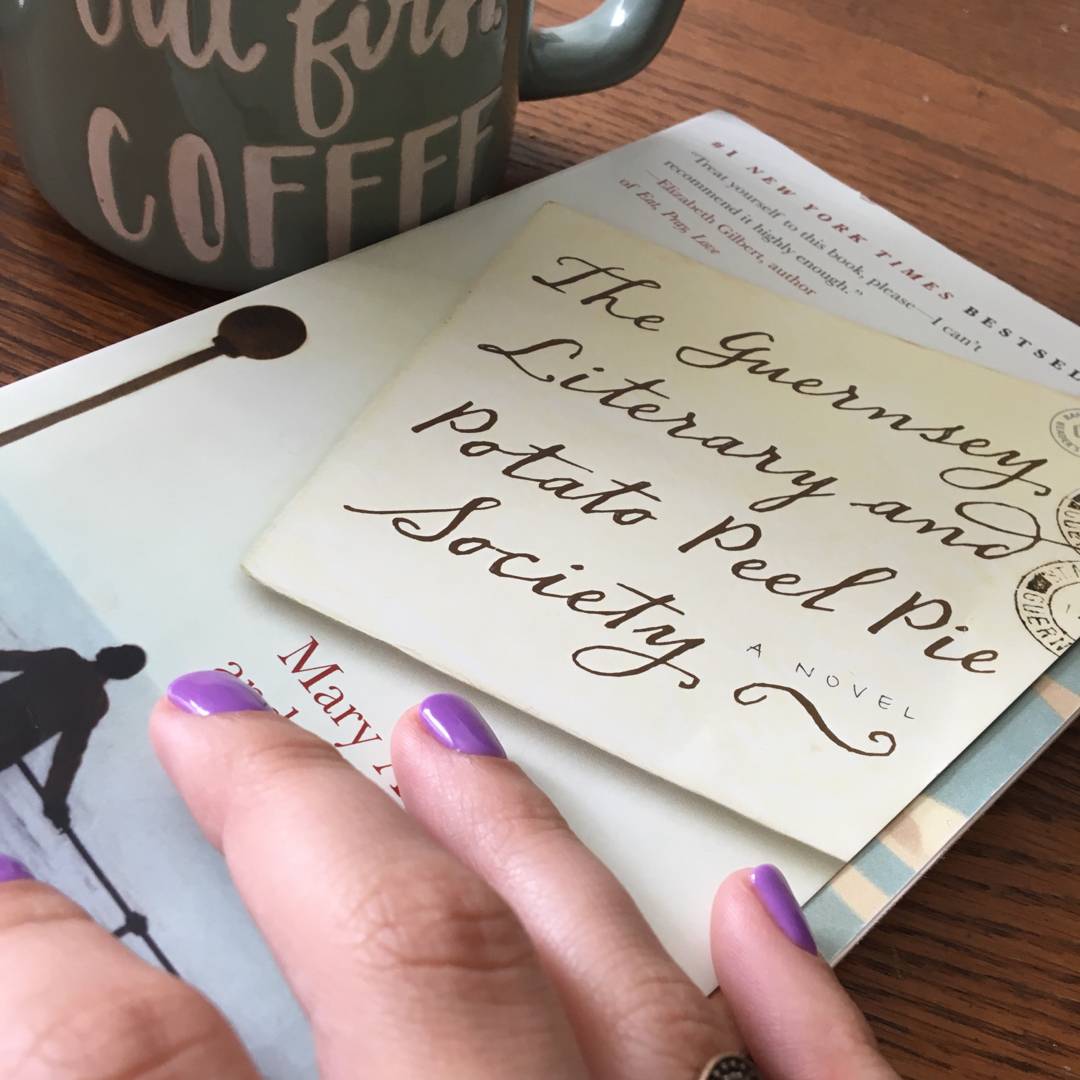 but first,
COFFEE
#1 NEW YORK TIMES BESTSEL
"Treat yourself to this book, please—I can't
recommend it highly enough."
—Elizabeth Gilbert, author
of Eat, Pray, Love
The Guernsey
Literary and
Potato Peel Pie
Society
A NOVEL
GUERN
Mary A
and